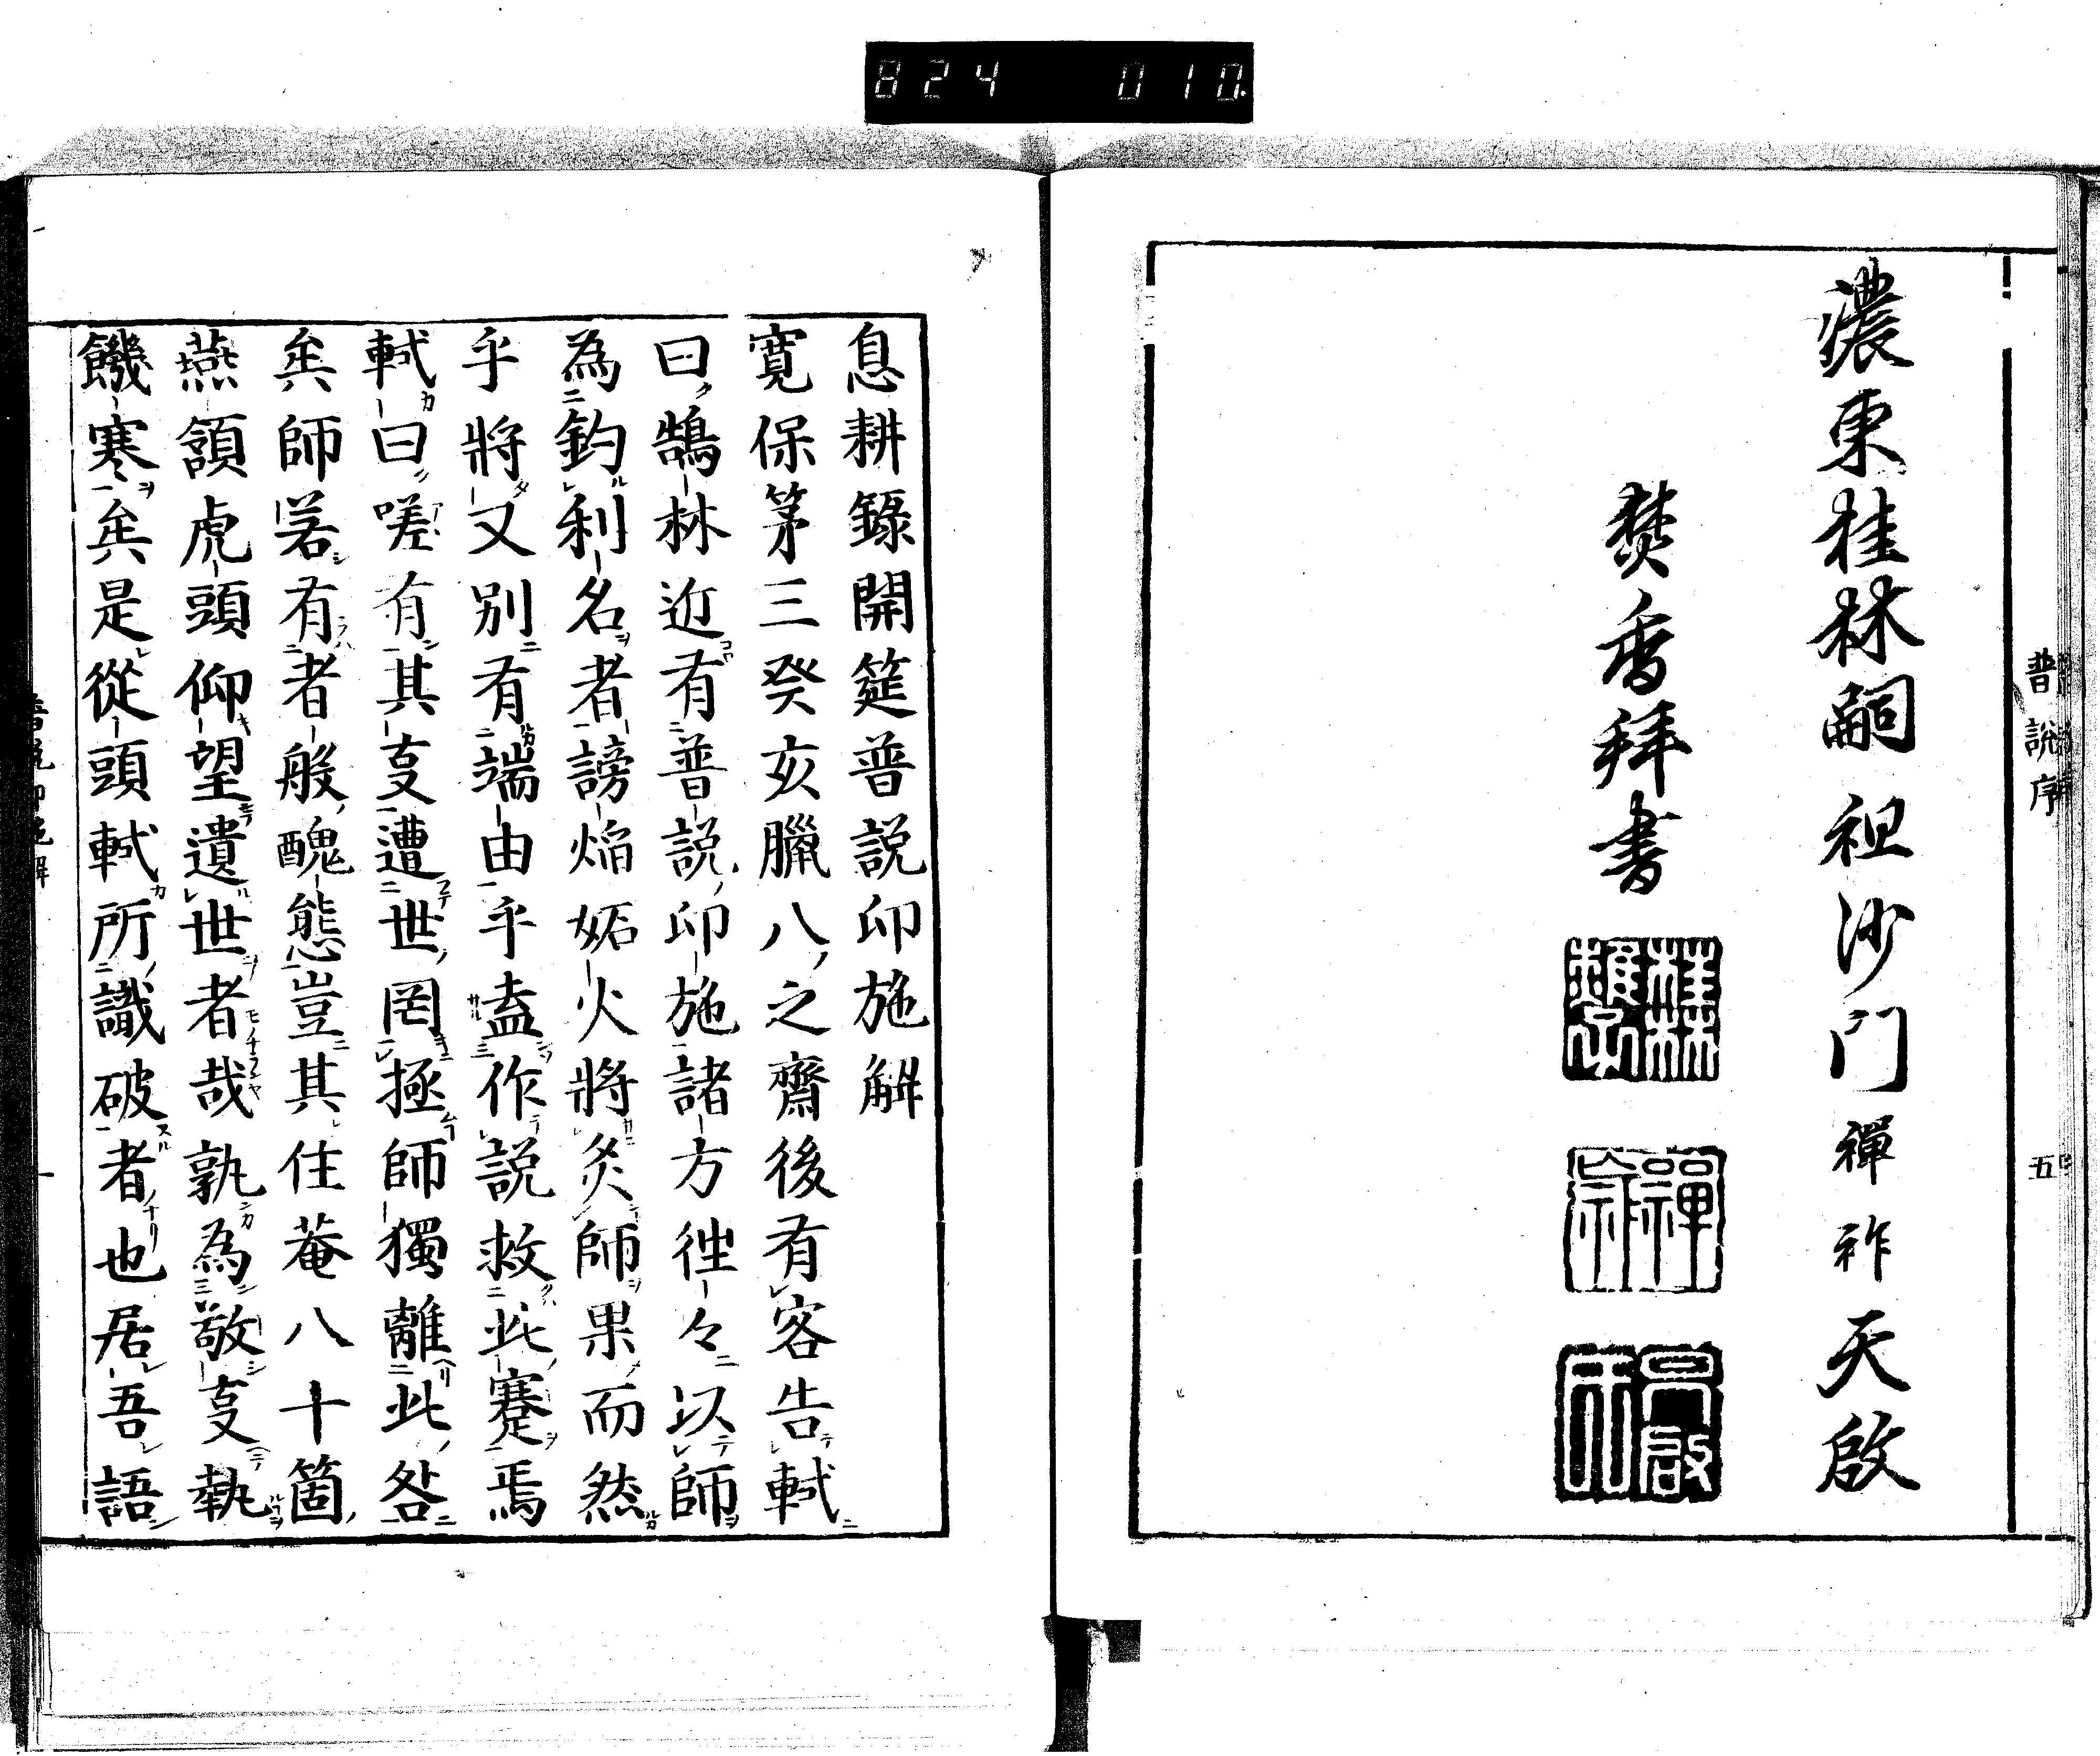 824 010
濃東桂林嗣祖沙門禪祚天啟
焚香拜書
普說序
五
息耕錄開筵普説印施解
寛保第三癸亥臘八之齋後有客告軾
曰鵠林近有普説印施諸方徃々以師
為釣利名者謗焔妬火將炙師果而然
乎將又別有端由乎盍作説救此蹇焉
軾曰嗟有其㕝遭世罔極師獨離此咎
矣師若有者般醜態豈其住菴八十箇
燕頷虎頭仰望遺世者哉孰為敬㕝執
饑寒矣是從頭軾所識破者也居吾語